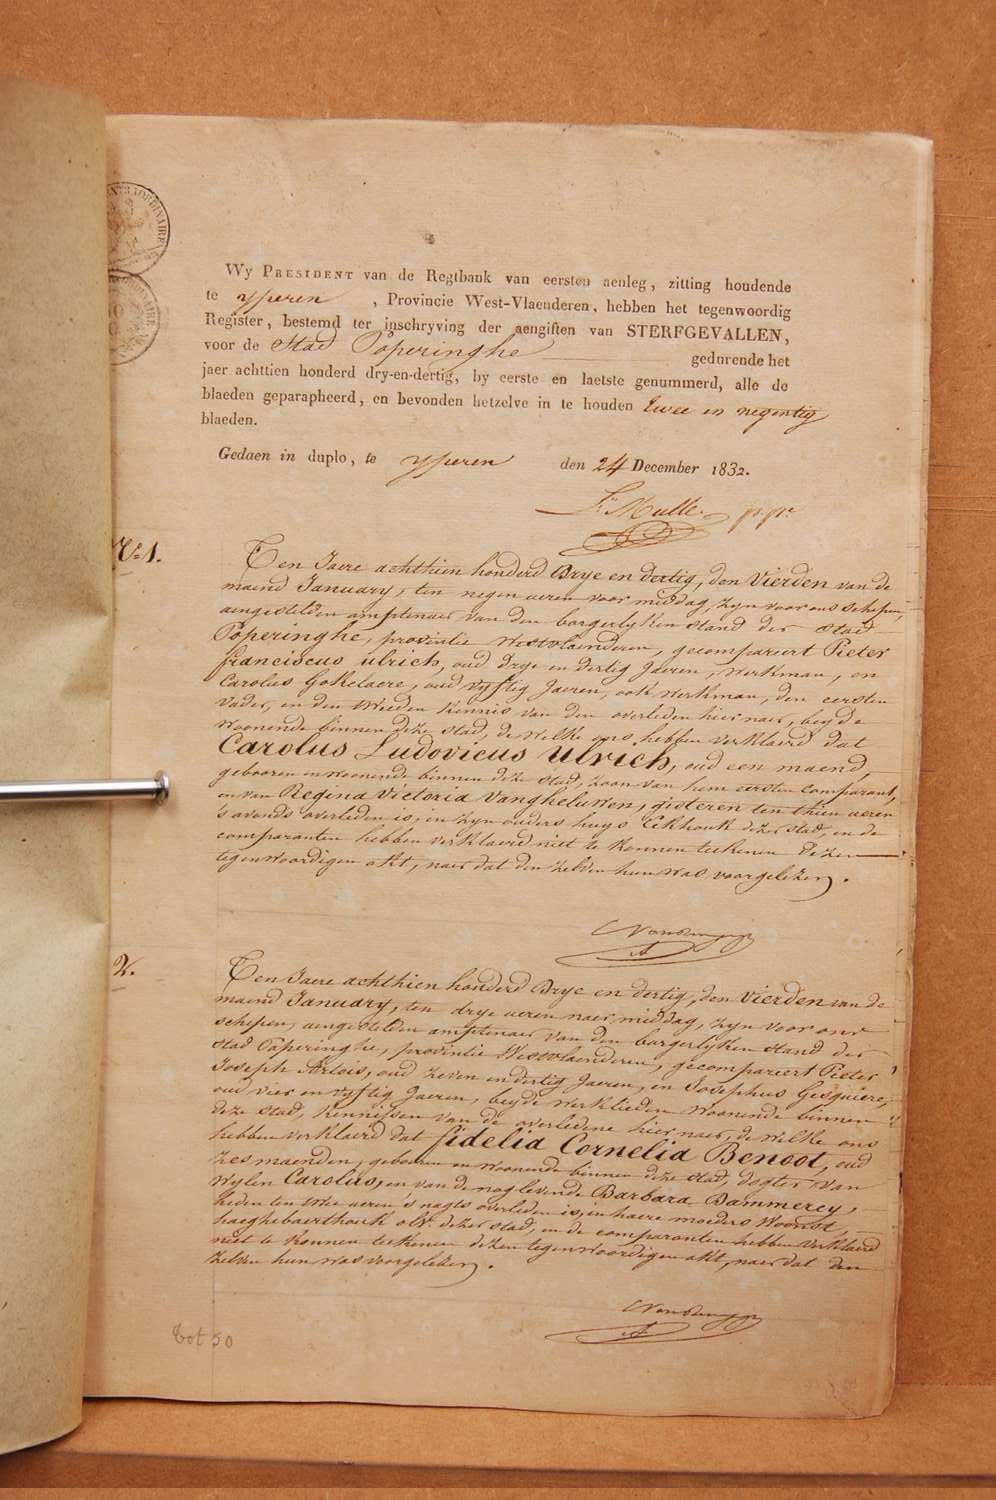 Wy PRESIDENT van de Regtbank van eersten aenleg, zitting houdende
te yperen , Provincie West-Vlaenderen, hebben het tegenwoordig
Register, bestemd ter inschryving der aengiften van STERFGEVALLEN,
voor de Stad Poperinghe gedurende het
jaer achttien honderd dry-en-dertig, by eerste en laetste genummerd, alle de
blaeden geparapheerd, en bevonden hetzelve in te houden twee en negentig
blaeden.
Gedaen in duplo, te yperen den 24 December 1832.
N.º 1.
Ten Jaere achthien honderd Drye en dertig, den Vierden van de
maend January, ten negen ueren voor middag, zyn voor ons schepen,
aengestelden amptenaer van den borgerlyken stand der stad
Poperinghe, provintie Westvlaenderen, gecompareert Pieter
franciscus ulrich, oud drye en dertig Jaeren, werkman, en
Carolus Gokelaere, oud vyftig Jaeren, ook werkman, den eersten
vader, en den tweeden kennis van den overleden hier naer, beyde
woonende binnen deze stad, de welke ons hebben verklaerd dat
Carolus Ludovicus Ulrich, oud een maend,
gebooren en woonende binnen deze stad, zoon van hem eersten comparant,
en van Regina Victoria Vangheluwen, gisteren ten thien ueren
's avonds overleden is, en zyn ouders huys Eekhouk dezer stad, en de
comparanten hebben verklaerd niet te konnen teekenen dezen
tegenwoordigen akt, naer dat den zelven hun was voorgelezen.
2.
Ten Jaere achthien honderd Drye en dertig, den vierden van de
maend January, ten drye ueren naer middag, zyn voor ons
schepen, aengestelden amptenaer van den borgerlyken stand der
stad Poperinghe, provintie Westvlaenderen, gecompareert Pieter
Joseph Artois, oud zeven en dertig Jaeren, en Josephus Gesquiere,
oud vier en vyftig Jaeren, beyde werklieden woonende binnen
deze stad, kennissen van de overledene hier naer, de welke ons
hebben verklaerd dat fidelia Cornelia Benoot, oud
zes maenden, gebooren en woonende binnen deze stad, dogter van
wylen Carolus, en van de noglevende Barbara Dammerey,
heden ten twee ueren 's nagts overleden is, in haere moeders woonst,
haeghebaerthouk dezer stad, en de comparanten hebben verklaerd
niet te konnen teekenen dezen tegenwoordigen akt, naer dat den
zelven hun was voorgelezen.
tot 50